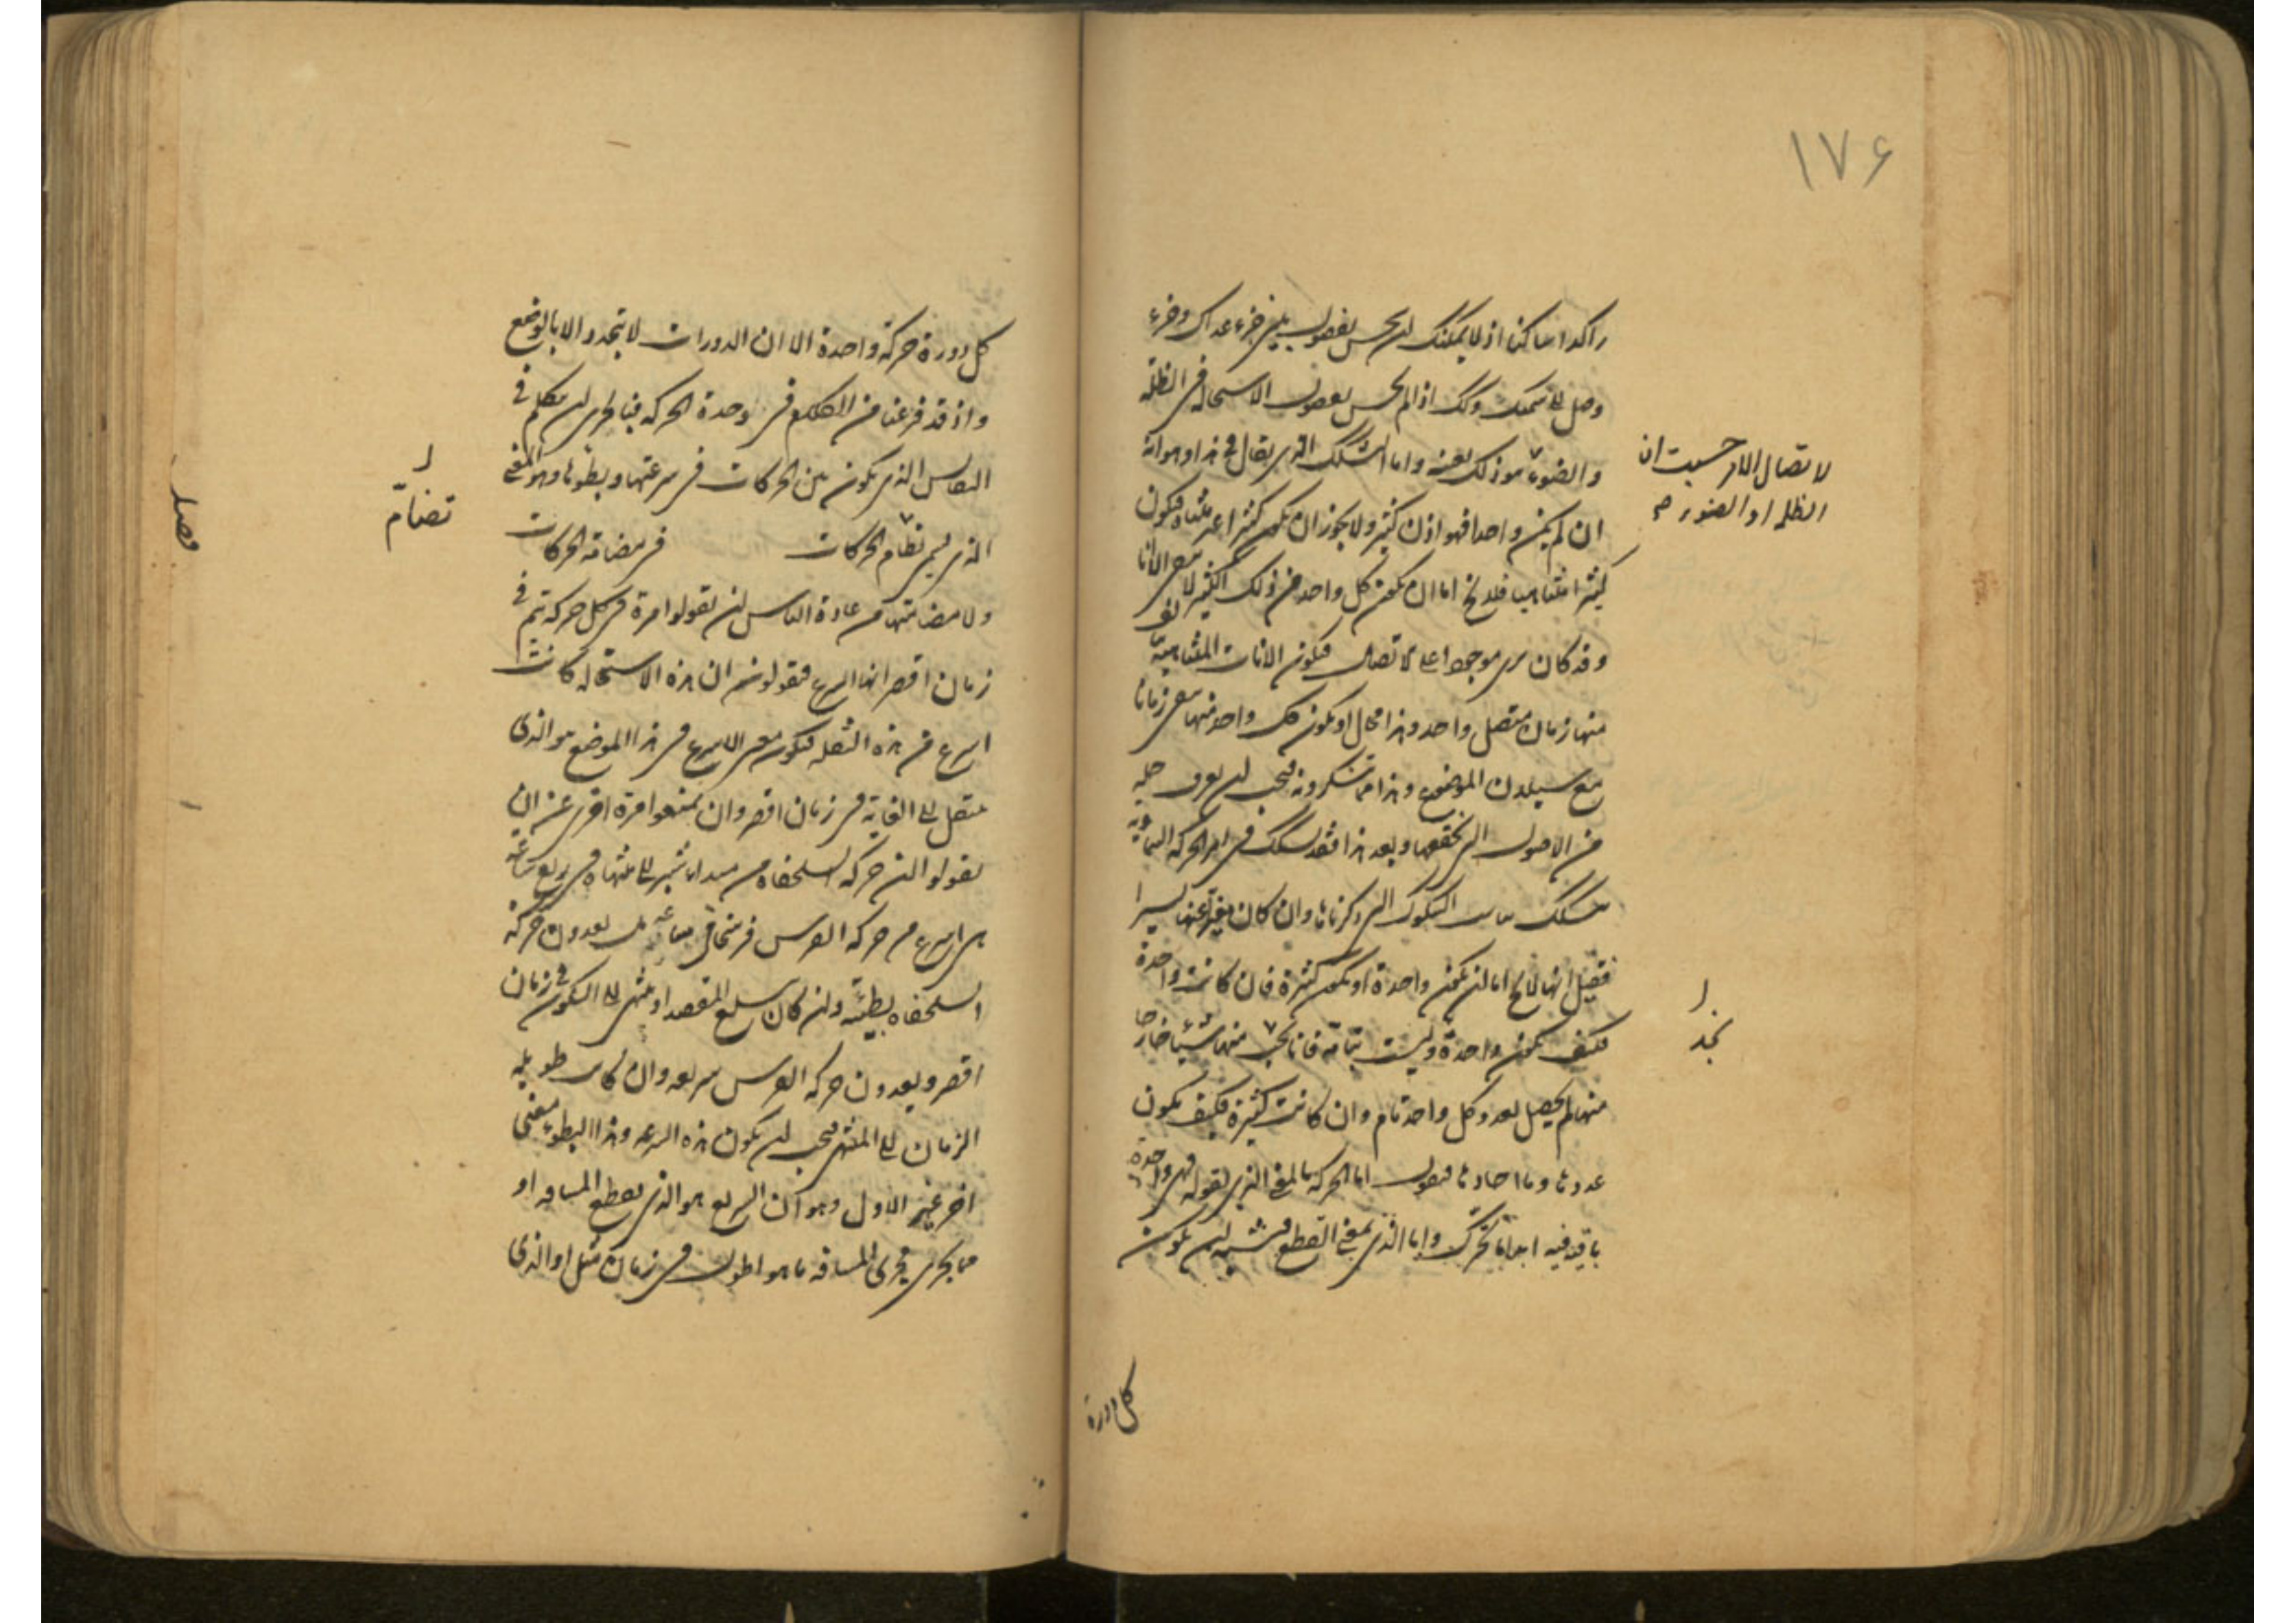 ١٧۶
راكدا ساكنا اذ لا يمكنك ان تحس بفصول بين جزء عداك وجزء
وصل الى سمتك وذلك اذا لم تحس بفصول الاستحالة فى الظلمة
والضوء هو ذلك بعينه واما التشكك الذى يقال فى هذا وهو انه
ان لم يكن واحدا فهو اذن كثير ولا يجوز ان يكون كثيرا غير متناه فيكون
كثيرا متناهيا فلا يخ اما ان يكون كل واحد من ذلك الكثير لا يبقى الا آنا
وقد كان يرى موجودا على الاتصال فيكون الآنات المتناهية
منها زمان متصل واحد وهذا محال او يكون كل واحد منها يبقى زمانا
مع سيلان الموضوع وهذا مما تنكرونه فيجب ان يعرف حله
من الاصول التى تحققها وبعد هذا فقد تشكك فى امر الحركة السماوية
تشكك يناسب الشكوك التى ذكرناها وان كان مغيرا عنها يسيرا
فقيل انها لا يخ اما ان يكون واحدة او يكون كثيرة فان كانت واحدة
فكيف يكون واحدة وليست بتامة فانا نجد منها شيئا خارجا
منها لم يحصل بعد وكل واحد تام وان كانت كثيرة فكيف يكون
عددها وما احادها فنقول اما الحركة بالمعنى الذى نقوله فهى واحدة
باقية فيه ابدا ما تحرك واما الذى بمعنى القطع فيشبه ان يكون
لاتصال الامر حسبت ان
الظلمة او الضوء
نجد
كل دورة
كل دورة حركة واحدة الا ان الدورات لا يتحدد الا بالوضع
واذ قد فرغنا من الكلام فى وحدة الحركة فبالحرى ان نتكلم فى
القياس الذى يكون بين الحركات فى سرعتها وبطوءها وهو المعنى
الذى يسمى نظام الحركات فى مضامة الحركات
ولا مضامتها من عادة الناس ان يقولوا مرة فى كل حركة يتم فى
زمان اقصر انها اسرع فيقولون ان هذه الاستحالة كانت
اسرع من هذه النقلة فيكون معنى الاسرع فى هذا الموضع هو الذى
يتصل الى الغاية فى زمان اقصر وان يمتنعوا مرة اخرى عن ان
يقولوا ان حركة السلحفاة من مبداء شبر الى منتهاه فى ربع ساعة
هى اسرع من حركة الفرس فرسخا فى ساعة بل يعدون حركة
السلحفاة بطيئة وان كان يبلغ المقصد او ينتهى الى السكون فى زمان
اقصر ويعدون حركة الفرس سريعة وان كانت طويلة
الزمان الى المنتهى فيجب ان يكون هذه السرعة وهذا البطوء معنى
آخر غير الاول وهو ان السريع هو الذى يقطع المسافة او
ما يجرى مجرى المسافة ما هو اطول فى زمان مثل او الذى
تضامّ
فصل